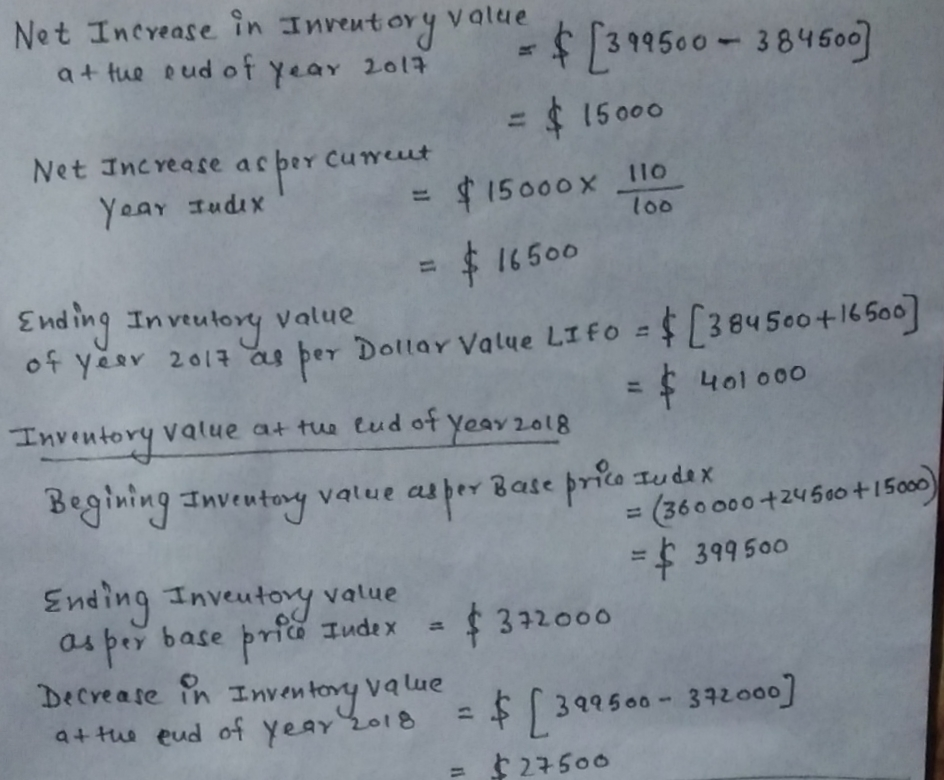 Net Increase in Inventory value
at the end of year 2017 = $ [399500 - 384500]
= $ 15000
Net Increase as per current
Year Index = $ 15000 x 110/100
= $ 16500
Ending Inventory value
of year 2017 as per Dollar Value LIFO = $ [384500+16500]
= $ 401000
Inventory value at the end of Year 2018
Begining Inventory value as per Base price Index
= (360000+24500+15000)
= $ 399500
Ending Inventory value
as per base price Index = $ 372000
Decrease in Inventory value
at the end of Year 2018 = $ [399500 - 372000]
= $27500